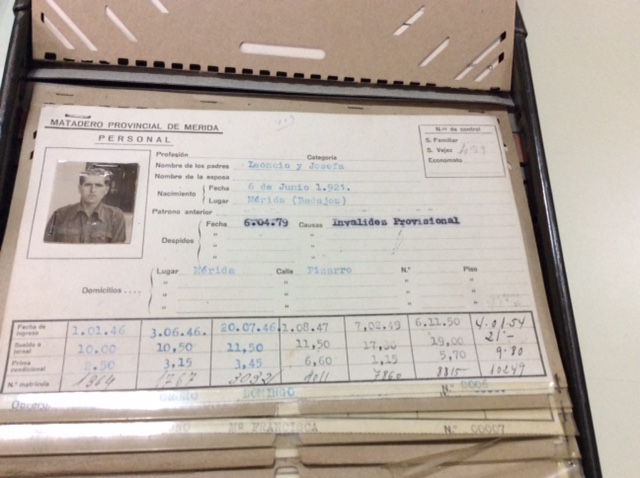 MATADERO PROVINCIAL DE MERIDA
PERSONAL
N.º de control
S. Familiar
S. Vejez
Economato
Profesión Categoría
Nombre de los padres Leoncio y Josefa
Nombre de la esposa
Nacimiento Fecha 6 de Junio 1.921.
Lugar Mérida (Badajoz)
Patrono anterior
Despidos Fecha 6.04.79 Causas Invalidez Provisional
" "
" "
" "
Domicilios .... Lugar Mérida Calle Pizarro N.º Piso
" " " "
" " " "
" " "
Fecha de ingreso 1.01.46 3.06.46. 20.07.46 1.08.47 7.02.49 6.11.50 4-01-54
Sueldo o jornal 10.00 10,50 11,50 11,50 17,50 19,00 21'-
Prima condicional 2.50 3,15 3,45 6,60 1,15 5,70 9.80
N.º matrícula 1767 4011 7860 8815 10249
DOMINGO N.º
Mª FRANCISCA N.º 00007